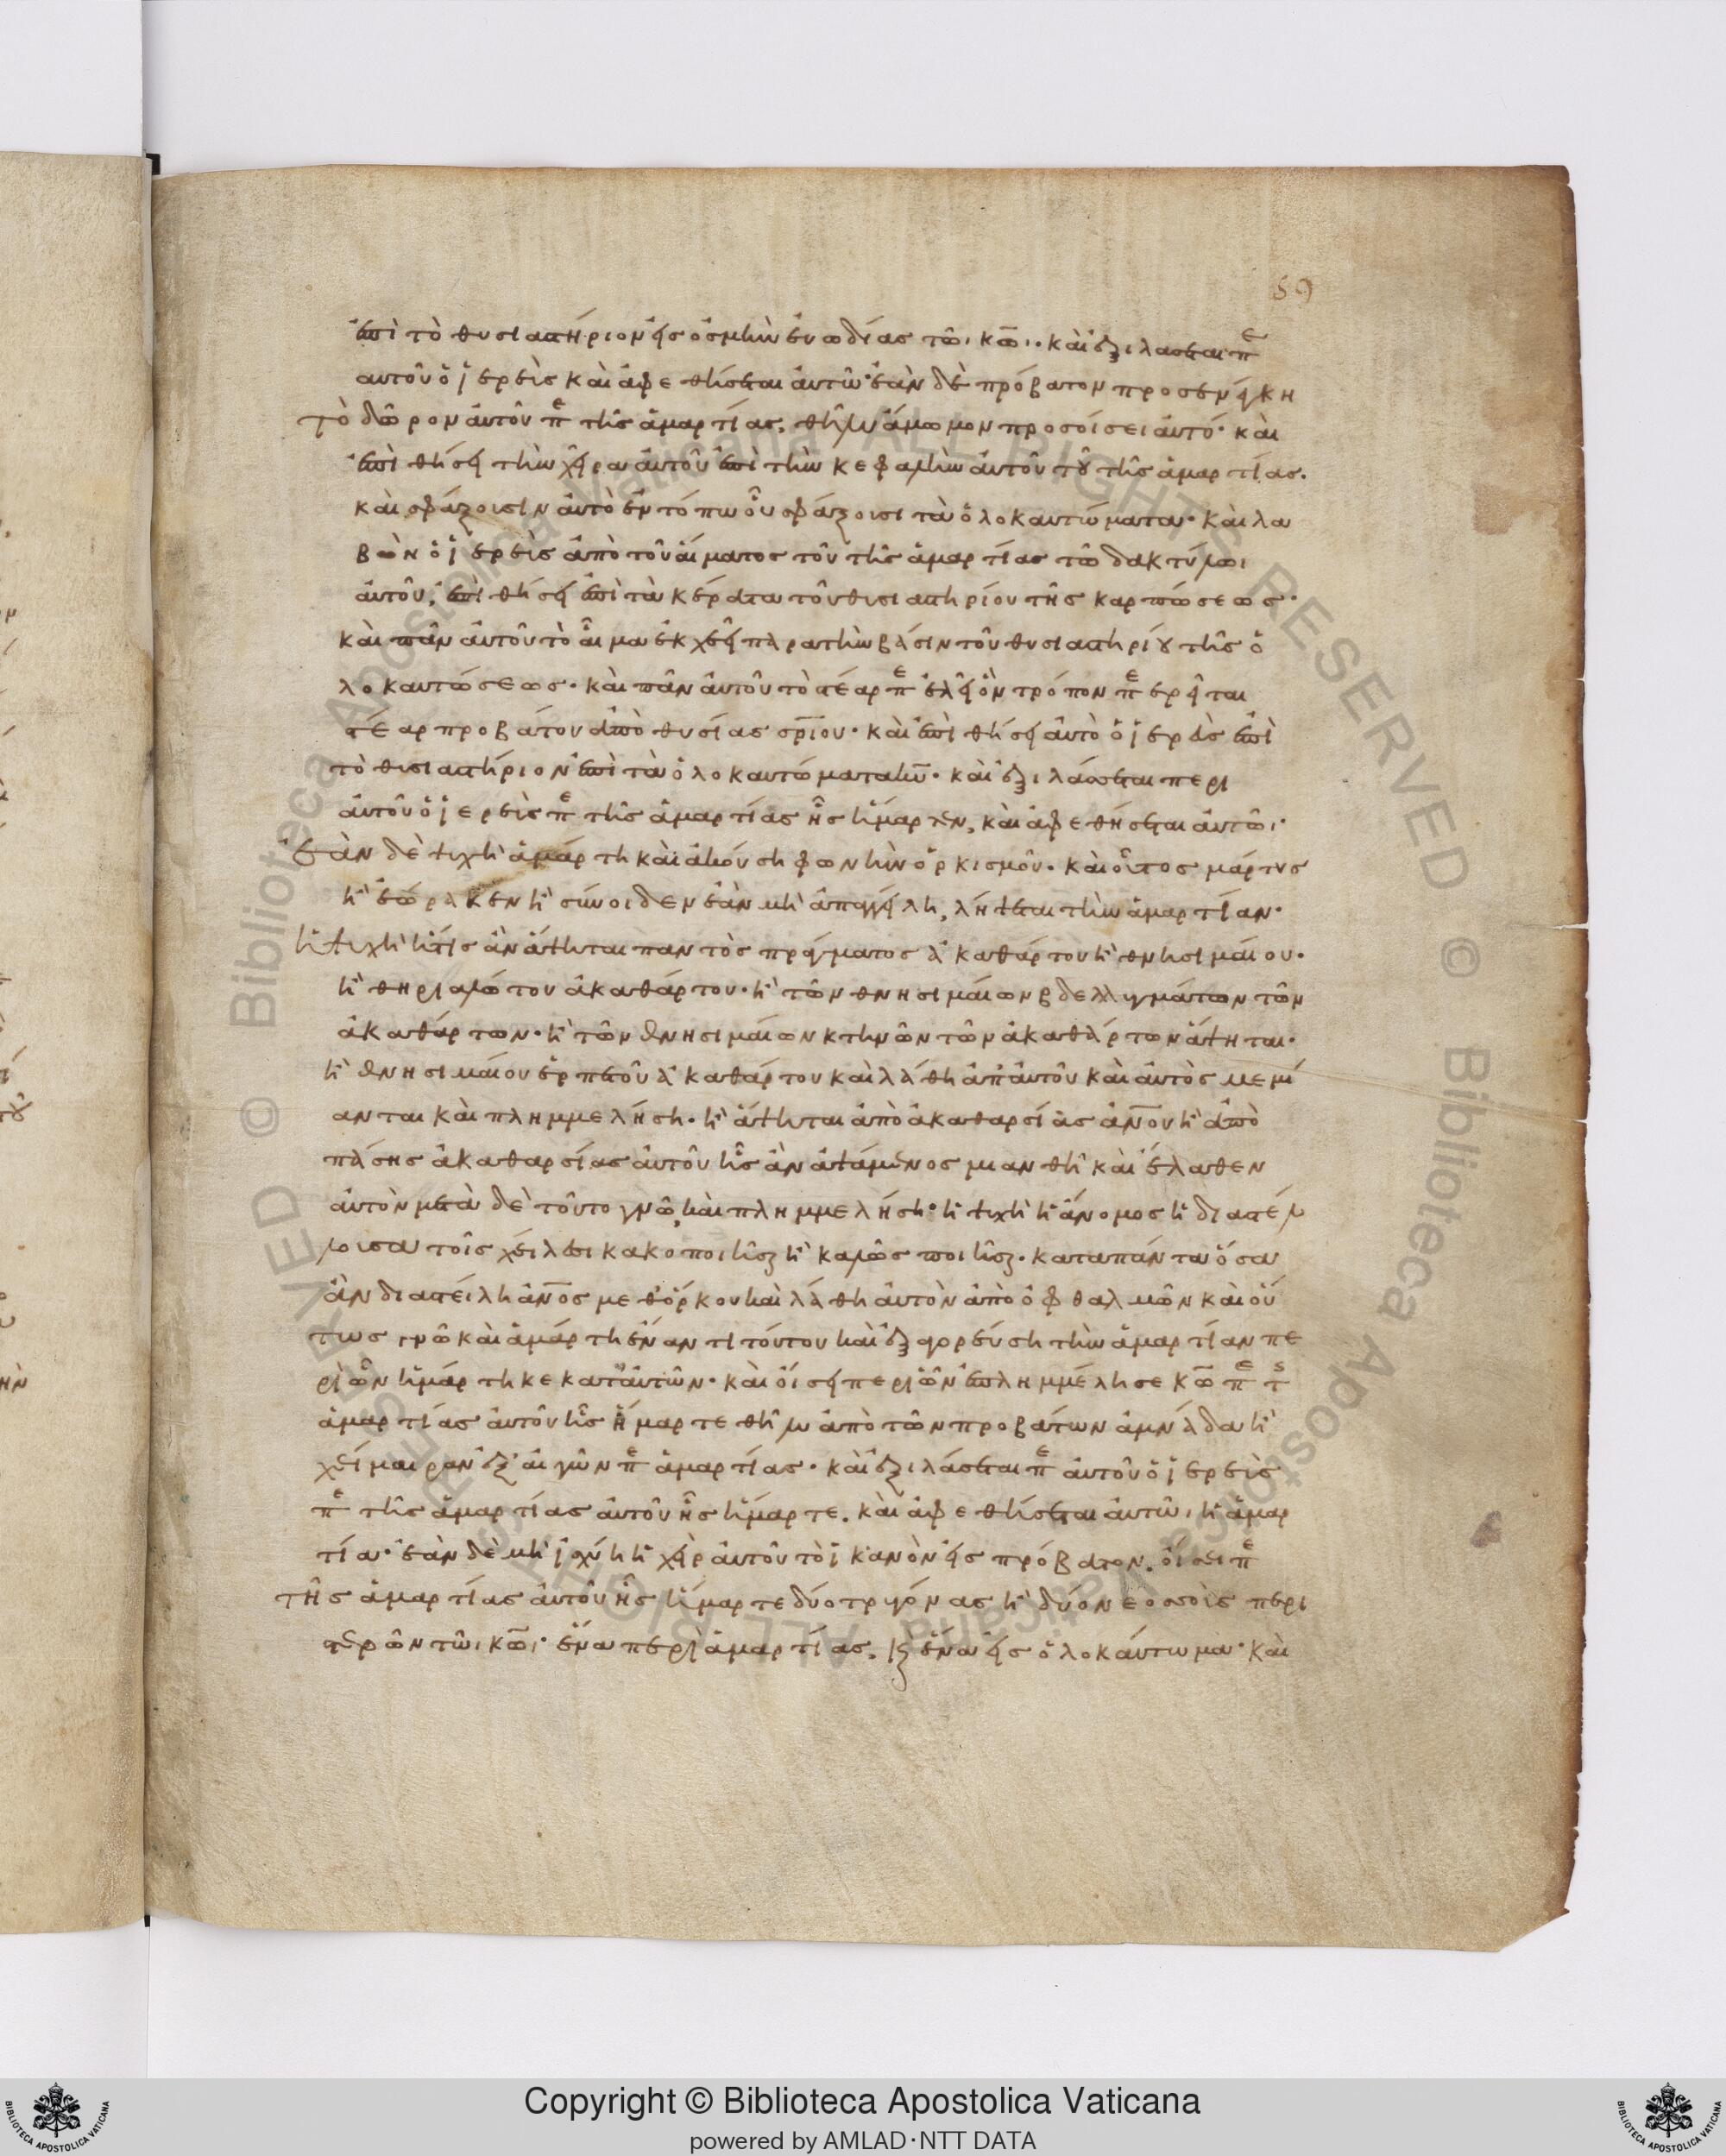 59
ἐπὶ τὸ θυσιαστήριον εἰς ὀσμὴν εὐωδίας τῶι κ̅ω̅ι· καὶ ἐξιλάσεται πε̅
αυτοῦ ὁ ἱερεὺς καὶ ἀφεθήσεται αὐτῶ· ἐὰν δὲ πρόβατον προσενέγκη
τὸ δῶρον αὐτοῦ πε̅ τῆς ἁμαρτίας, θῆλυ ἄμωμον προσοίσει αὐτό· καὶ
ἐπιθήσει τὴν χεῖρα αὐτοῦ ἐπὶ τὴν κεφαλὴν αὐτοῦ τοῦ τῆς ἁμαρτίας.
καὶ σφάζουσιν αὐτὸ ἐν τόπω οὗ σφάζουσι τὰ ὁλοκαυτώματα· καὶ λα
βὼν ὁ ἱερεὺς ἀπὸ τοῦ αἵματος τοῦ τῆς ἁμαρτίας τῶ δακτύλωι
αὐτοῦ, ἐπιθήσει ἐπὶ τὰ κέρατα τοῦ θυσιαστηρίου τῆς καρπώσεως·
καὶ πᾶν αὐτοῦ τὸ αἷμα ἐκχεεῖ παρα τὴν βάσιν τοῦ θυσιαστηρίου τῆς ὁ
λοκαυτώσεως· καὶ πᾶν αὐτοῦ τὸ στέαρ πε̅ ελεῖ ὃν τρόπον πε̅ ερεῖται
στέαρ προβάτου ἀπὸ θυσίας σ̅ρ̅ίου· καὶ ἐπιθήσει αὐτὸ ὁ ἱερεὺς ἐπὶ
τὸ θυσιαστήριον ἐπὶ τὰ ὁλοκαυτώματα κ̅υ̅· καὶ ἐξιλάσεται περι
αὐτοῦ ὁ ἱερεὺς πε̅ τῆς ἁμαρτίας ἧς ἥμαρτεν, καὶ ἀφεθήσεται αὐτῶι·
ἐὰν δὲ ψυχὴ ἁμάρτη καὶ ἀκούση φωνὴν ὁρκισμοῦ· καὶ οὗτος μάρτυς
ἢ ἑώρακεν ἢ σύνοιδεν ἐὰν μὴ ἀπαγγείλη, λήψεται τὴν ἁμαρτίαν·
ἢ ψυχὴ ἥτις ἂν ἅψηται παντὸς πράγματος ἀκαθάρτου ἢ θνησιμαίου·
ἢ θηριαλώτου ἀκαθάρτου· ἢ τῶν θνησιμαίων βδελλυγμάτων τῶν
ἀκαθάρτων· ἢ τῶν θνησιμαίων κτηνῶν τῶν ἀκαθάρτων ἅψηται·
ἢ θνησιμαίου ἑρπετοῦ ἀκαθάρτου καὶ λάθη ἀπ' αὐτοῦ καὶ αὐτὸς μεμί
ανται καὶ πλημμελήση· ἢ ἅψηται ἀπὸ ἀκαθαρσίας ἀν̅ου ἢ ἀπὸ
πάσης ἀκαθαρσίας αὐτοῦ ἧς ἂν ἁψάμενος μιανθῆ καὶ ἔλαθεν
αὐτὸν μετὰ δὲ τοῦτο γνῶ, καὶ πλημμελήση· ἢ ψυχὴ ἡ ἄνομος ἡ διαστέλ
λουσα τοῖς χείλεσι κακοποιῆσαι ἢ καλῶς ποιῆσαι· καταπάντα ὅσα
ἂν διαστείλη ἄν̅ο̅ς μεθ' ὅρκου καὶ λάθη αὐτὸν ἀπὸ ὀφθαλμῶν καὶ οὕ
τως γνῶ καὶ ἁμάρτη ἕν τι τούτου καὶ ἐξαγορεύση τὴν ἁμαρτίαν πε
ρὶ ὧν ἡμάρτηκε κατ' αὐτῶν· καὶ οἴσει περὶ ὧν ἐπλημμέλησε κ̅ω̅ πε̅ τς̅
ἁμαρτίας αὐτοῦ ἧς ἥμαρτε θῆλυ ἀπὸ τῶν προβάτων ἀμνάδα ἢ
χείμαιραν ἐξ αἰγῶν πε̅ ἁμαρτίας· καὶ ἐξιλάσεται πε̅ αὐτοῦ ὁ ἱερεὺς
πε̅ τῆς ἁμαρτίας αὐτοῦ ἧς ἥμαρτε. καὶ ἀφεθήσεται αὐτῶι ἡ ἁμαρ
τία· ἐὰν δὲ μὴ ἰσχύη ἡ χεὶρ αὐτοῦ τὸ ἱκανὸν εἰς πρόβατον. οἴσει πε̅
τῆς ἁμαρτίας αὐτοῦ ἧς ἥμαρτε δύο τρυγόνας ἢ δύο νεοσσοὺς περι
στερῶν τῶι κ̅ω̅ι· ἕνα περὶ ἁμαρτίας, κ(αὶ) ἕνα εἰς ὁλοκαύτωμα· καὶ
Copyright © Biblioteca Apostolica Vaticana
powered by AMLAD·NTT DATA